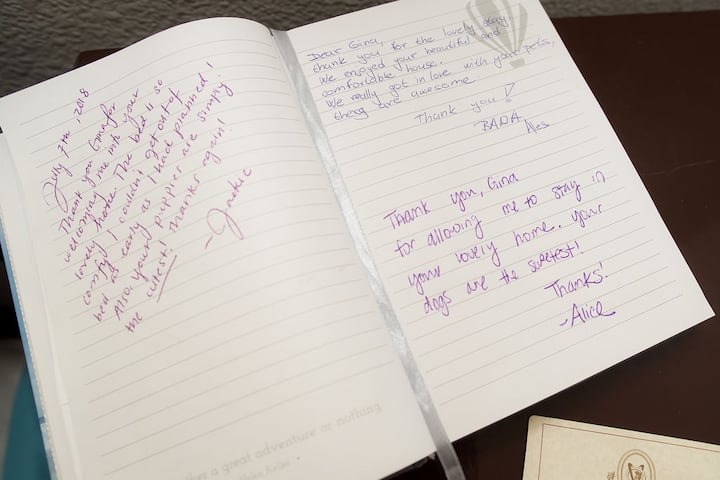 July 7th, 2018
Thank you Gina for
welcoming me into your
lovely home. The bed is so
comfy I couldn't get out of
bed as early as I had planned!
Also, your puppies are simply
the cutest! Thanks again!
- Jackie
ther a great adventure or nothing
Helen Keller
Dear Gina,
thank you for the lovely stay.
We enjoyed your beautiful and
comfortable house.
We really got in love with your pets,
they are awesome.
Thank you!
BADA,
Thank you, Gina
for allowing me to stay in
your lovely home. Your
dogs are the sweetest!
Thanks!
-Alice